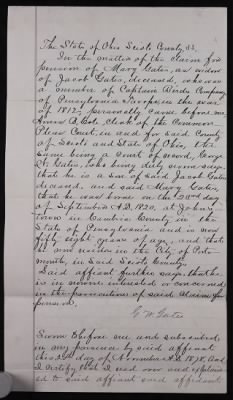 The State of Ohio Scioto County, SS.
In the matter of the claim for
pension of Mary Gates, as widow
of Jacob Gates, deceased, who was
a member of Captain Birds Company
of Pensylvania Troops in the war
of 1812, personally came before me
Amos B. Cole, Clerk of the Common
Pleas Court, in and for said County
of Scioto and State of Ohio, the
same being a Court of record, George
W. Gates, who being duly sworn says
that he is a son of said Jacob Gates
deceased, and said Mary Gates,
that he was born on the day
of September A.D. 1820, at Johns
town in Cambria County in the
State of Pensylvania and is now
fifty eight years of age, and that
he now resides in the City of Ports
mouth, in said Scioto County.
Said affiant further says that he
is in no wise interested or concerned
in the prosecution of said claim for
pension.
G. W. Gates
Sworn to before me and subscribed
in my presence by said affiant
this day of November A.D. 1878, and
I certify that I read over and explained
to said affiant said affidavit